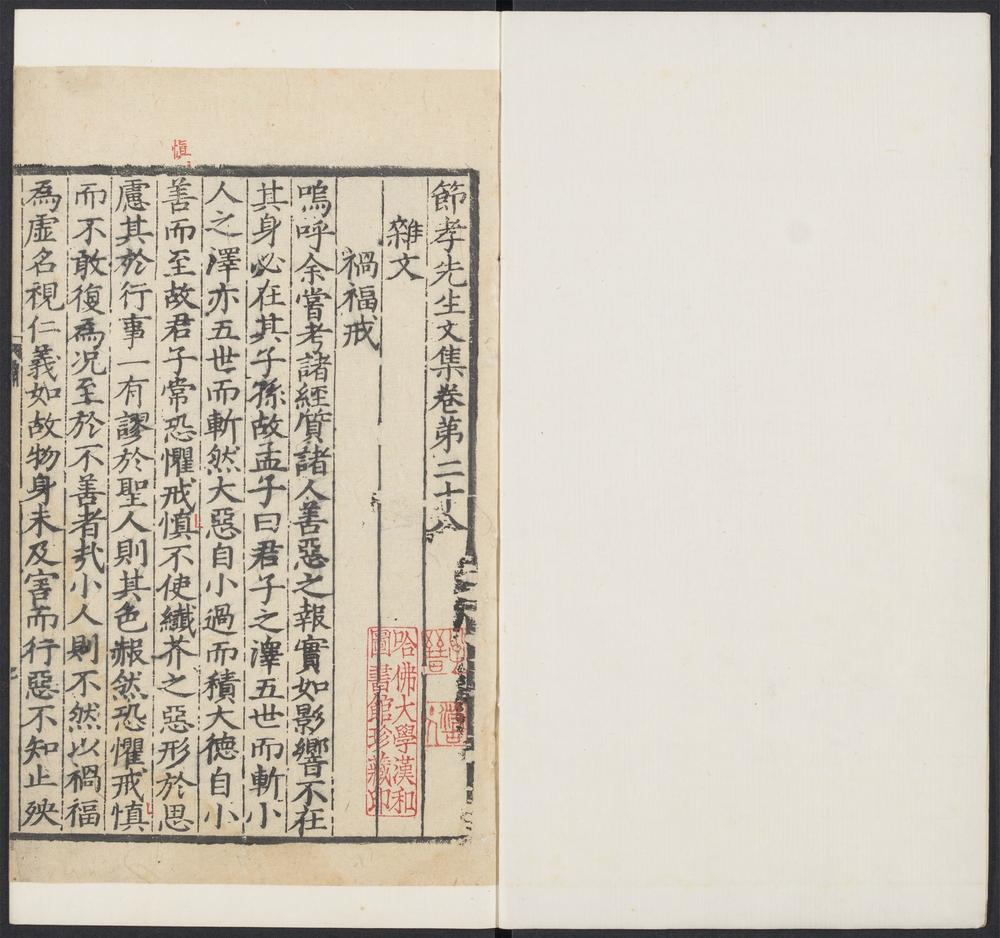 節孝先生文集卷第二十八
雜文
禍福戒
嗚呼余嘗考諸經質諸人善惡之報實如影響不在
其身必在其子孫故孟子曰君子之澤五世而斬小
人之澤亦五世而斬然大惡自小過而積大德自小
善而至故君子常恐懼戒慎不使纎芥之惡形於思
慮其於行事一有謬於聖人則其色赧然恐懼戒慎
而不敢復為况至於不善者㢤小人則不然以禍福
為虚名視仁義如故物身未及害而行惡不知止殃
慎
哈佛大學漢和
圖書館珍藏印